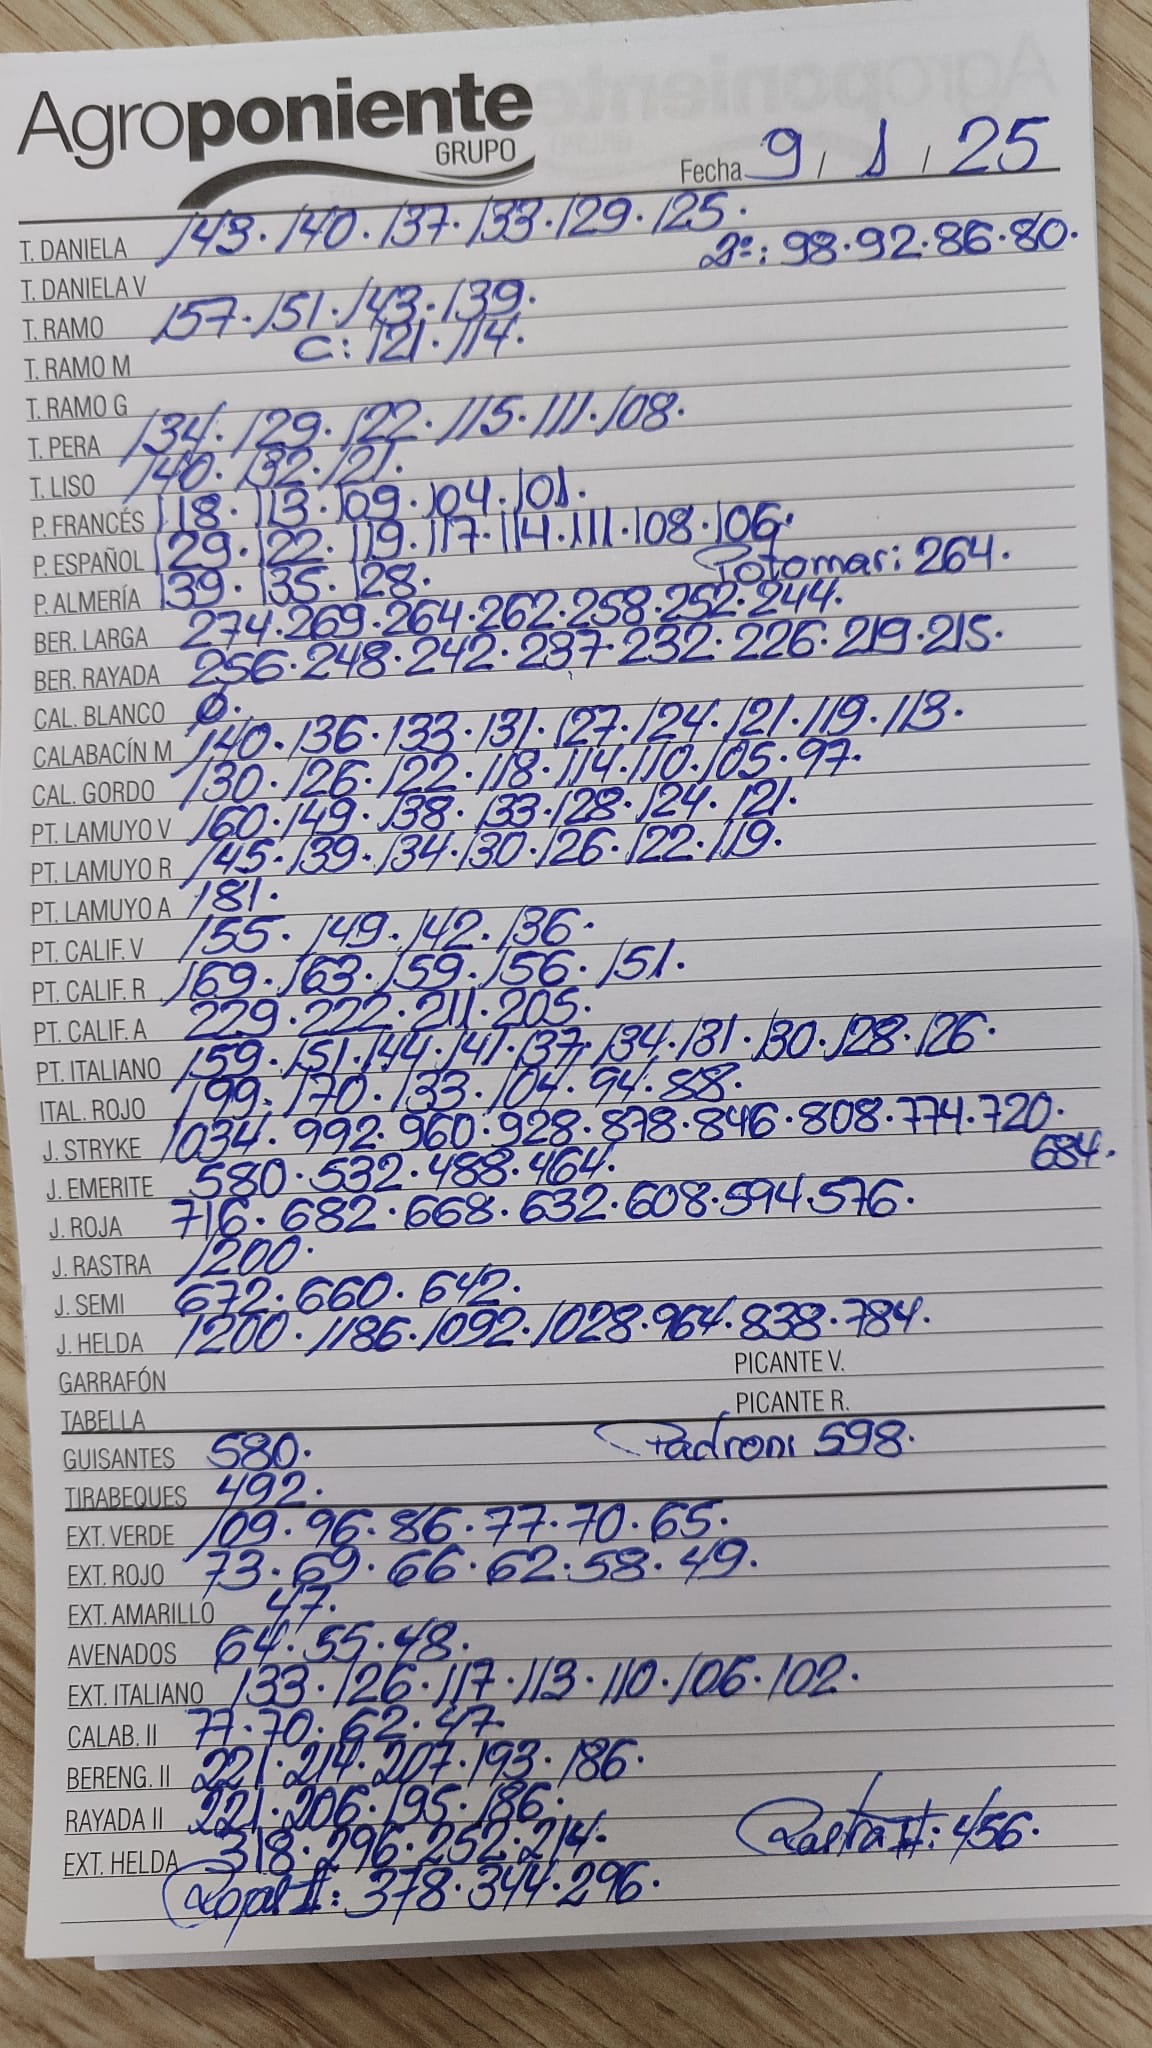 Agroponiente
GRUPO
Fecha 9 / 1 / 25
T. DANIELA 143. 140. 137. 133. 129. 125.
2ª: 98. 92. 86. 80.
T. DANELA V
T. RAMO 157. 151. 143. 139.
C: 121. 114.
T. RAMO M
T. RAMO G
T. PERA 134. 129. 122. 115. 111. 108.
T. LISO 140. 132. 121.
P. FRANCÉS 118. 113. 109. 104. 101.
P. ESPAÑOL 129. 122. 119. 117. 114. 111. 108. 106.
P. ALMERÍA 139. 135. 128. Potomar: 264.
BER. LARGA 274. 269. 264. 262. 258. 252. 244.
BER. RAYADA 256. 248. 242. 237. 232. 226. 219. 215.
CAL. BLANCO Ø.
CALABACÍN M 140. 136. 133. 131. 127. 124. 121. 119. 113.
CAL. GORDO 130. 126. 122. 118. 114. 110. 105. 97.
PT. LAMUYO V 160. 149. 138. 133. 128. 124. 121.
PT. LAMUYO R 145. 139. 134. 130. 126. 122. 119.
PT. LAMUYO A 181.
PT. CALIF. V 155. 149. 142. 136.
PT. CALIF. R 169. 163. 159. 156. 151.
PT. CALIF. A 229. 222. 211. 205.
PT. ITALIANO 159. 151. 144. 141. 137. 134. 131. 130. 128. 126.
ITAL. ROJO 199. 170. 133. 104. 94. 88.
J. STRYKE 1034. 992. 960. 928. 878. 846. 808. 774. 720.
684.
J. EMERITE 580. 532. 488. 464.
J. ROJA 716. 682. 668. 632. 608. 594. 576.
J. RASTRA 1200.
J. SEMI 672. 660. 642.
J. HELDA 1200. 1186. 1092. 1028. 964. 838. 784.
GARRAFÓN PICANTE V.
TABELLA PICANTE R.
GUISANTES 580. Padron: 598.
TIRABEQUES 492.
EXT. VERDE 109. 96. 86. 77. 70. 65.
EXT. ROJO 73. 69. 66. 62. 58. 49.
EXT. AMARILLO 47.
AVENADOS 64. 55. 48.
EXT. ITALIANO 133. 126. 117. 113. 110. 106. 102.
CALAB. II 77. 70. 62. 47.
BERENG. II 221. 214. 207. 193. 186.
RAYADA II 221. 206. 195. 186.
EXT. HELDA 318. 296. 252. 214. Rastra II: 456.
Roja II: 378. 344. 296.